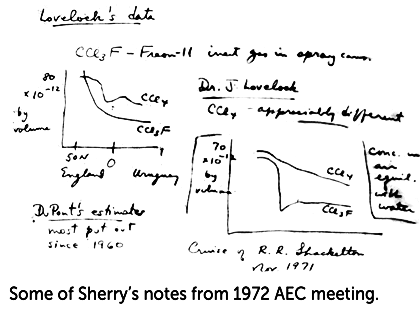 Lovelock's data
CCl3F - Freon-11 inert gas in spray cans.
80
x10-12
by
volume
CCl4
CCl3F
50N 0
England Uruguay
Dr. J Lovelock
CCl4 - appreciably different
70
x10-12
by
volume
CCl4
CCl3F
Conc. in
air
equil.
with
water
DuPont's estimates
most put out
since 1960
Cruise of R.R. Shackelton
Nov 1971
Some of Sherry's notes from 1972 AEC meeting.